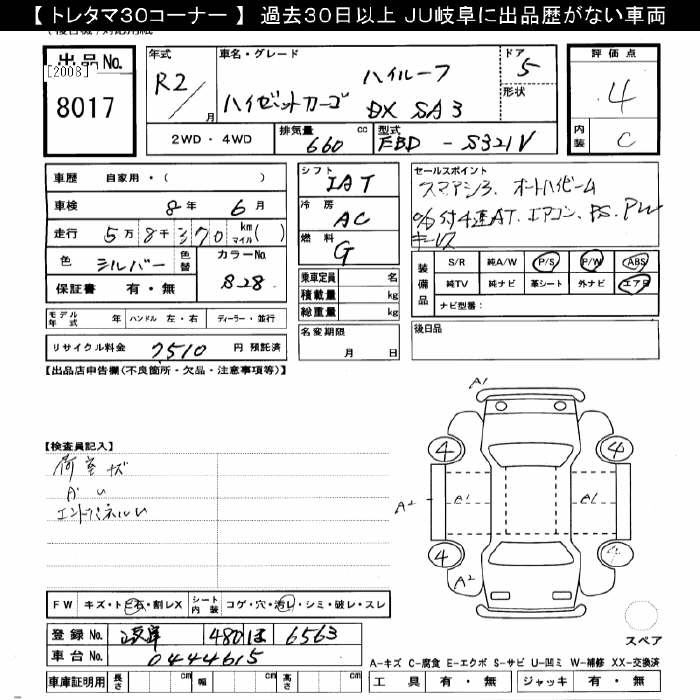 【 トレタマ30コーナー 】 過去30日以上 JU岐阜に出品歴がない車両
出品No.
[2008]
8017
年式
R2/
月
車名・グレード
ハイルーフ
ハイゼットカーゴ DX SA3
ドア
5
形状
評価点
4
内装
C
2WD・4WD
排気量
660
cc
型式
EBD - S321V
車歴 自家用・( )
車検 8 年 6 月
走行 5万8千370 km マイル( )
色 シルバー 色替
カラーNo.
S28
保証書 有・無
シフト
IAT
冷房
AC
燃料
G
乗車定員 名
積載量 kg
総重量 kg
セールスポイント
スマアシ3、オートハイビーム
付4速AT、エアコン、PS、PW
キーレス
装備品
S/R 純A/W P/S P/W ABS
純TV 純ナビ 革シート 外ナビ エアB
ナビ型番:
モデル年式 年 ハンドル 左・右 ディーラー・並行
リサイクル料金 7510 円 預託済
名変期限
月 日
後日品
【出品店申告欄(不良箇所・欠品・注意事項等)】
【検査員記入】
荷室キズ
エンドパネルU
A1
4
4
A2
A1
A1
4
A2
スペア
FW キズ・ト石・割レX
シート内装 コゲ・穴・汚レ・シミ・破レ・スレ
登録No. 岐阜 480 ほ 6563
車台No. 0444615
A-キズ C-腐食 E-エクボ S-サビ U-凹ミ W-補修 XX-交換済
車庫証明用 長さ cm 幅 cm 高さ cm
工具 有・無 ジャッキ 有・無